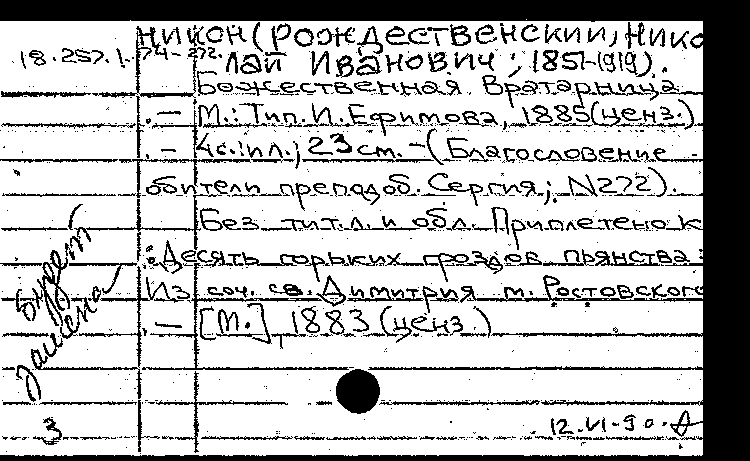 Никон (Рождественский, Нико
18.257.1.74-272. лай Иванович; 1851-1919).
Божественная Вратарница
. — М.: Тип. И. Ефимова, 1885 (ценз.)
. — 4с.: ил.; 23 см. — (Благословение
обители преподоб. Сергия; N272).
Без тит. л. и обл. Приплетено к
: Десять горьких гроздов пьянства:
Из соч. св. Димитрия м. Ростовского
. — [М.], 1883 (ценз.)
Будет
замена
3
12.VI-90.